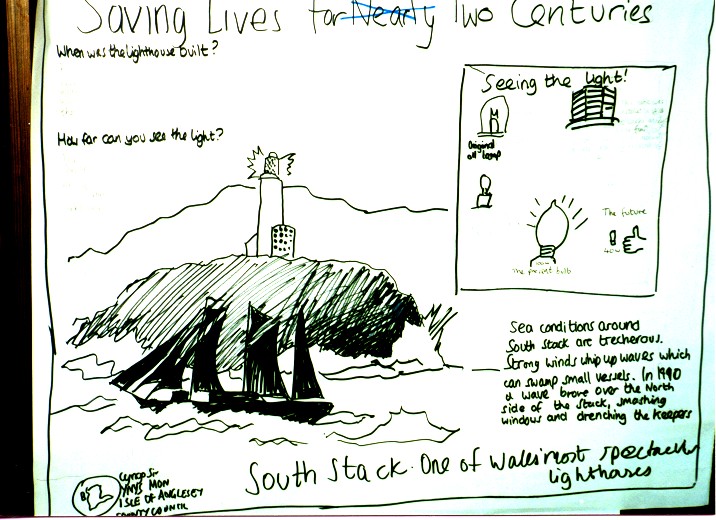 Saving Lives for Nearly Two Centuries
When was the lighthouse built?
How far can you see the light?
Seeing the light!
Original
oil lamp
The future
40W
The present bulb
Sea conditions around
South Stack are trecherous.
Strong winds whip up waves which
can swamp small vessels. In 1990
a wave brove over the North
side of the stack, smashing
windows and drenching the keepers
South Stack. One of Wales most spectaclu
lighthouses
Cyngor Sir
YNYS MON
ISLE OF ANGLESEY
COUNTY COUNCIL